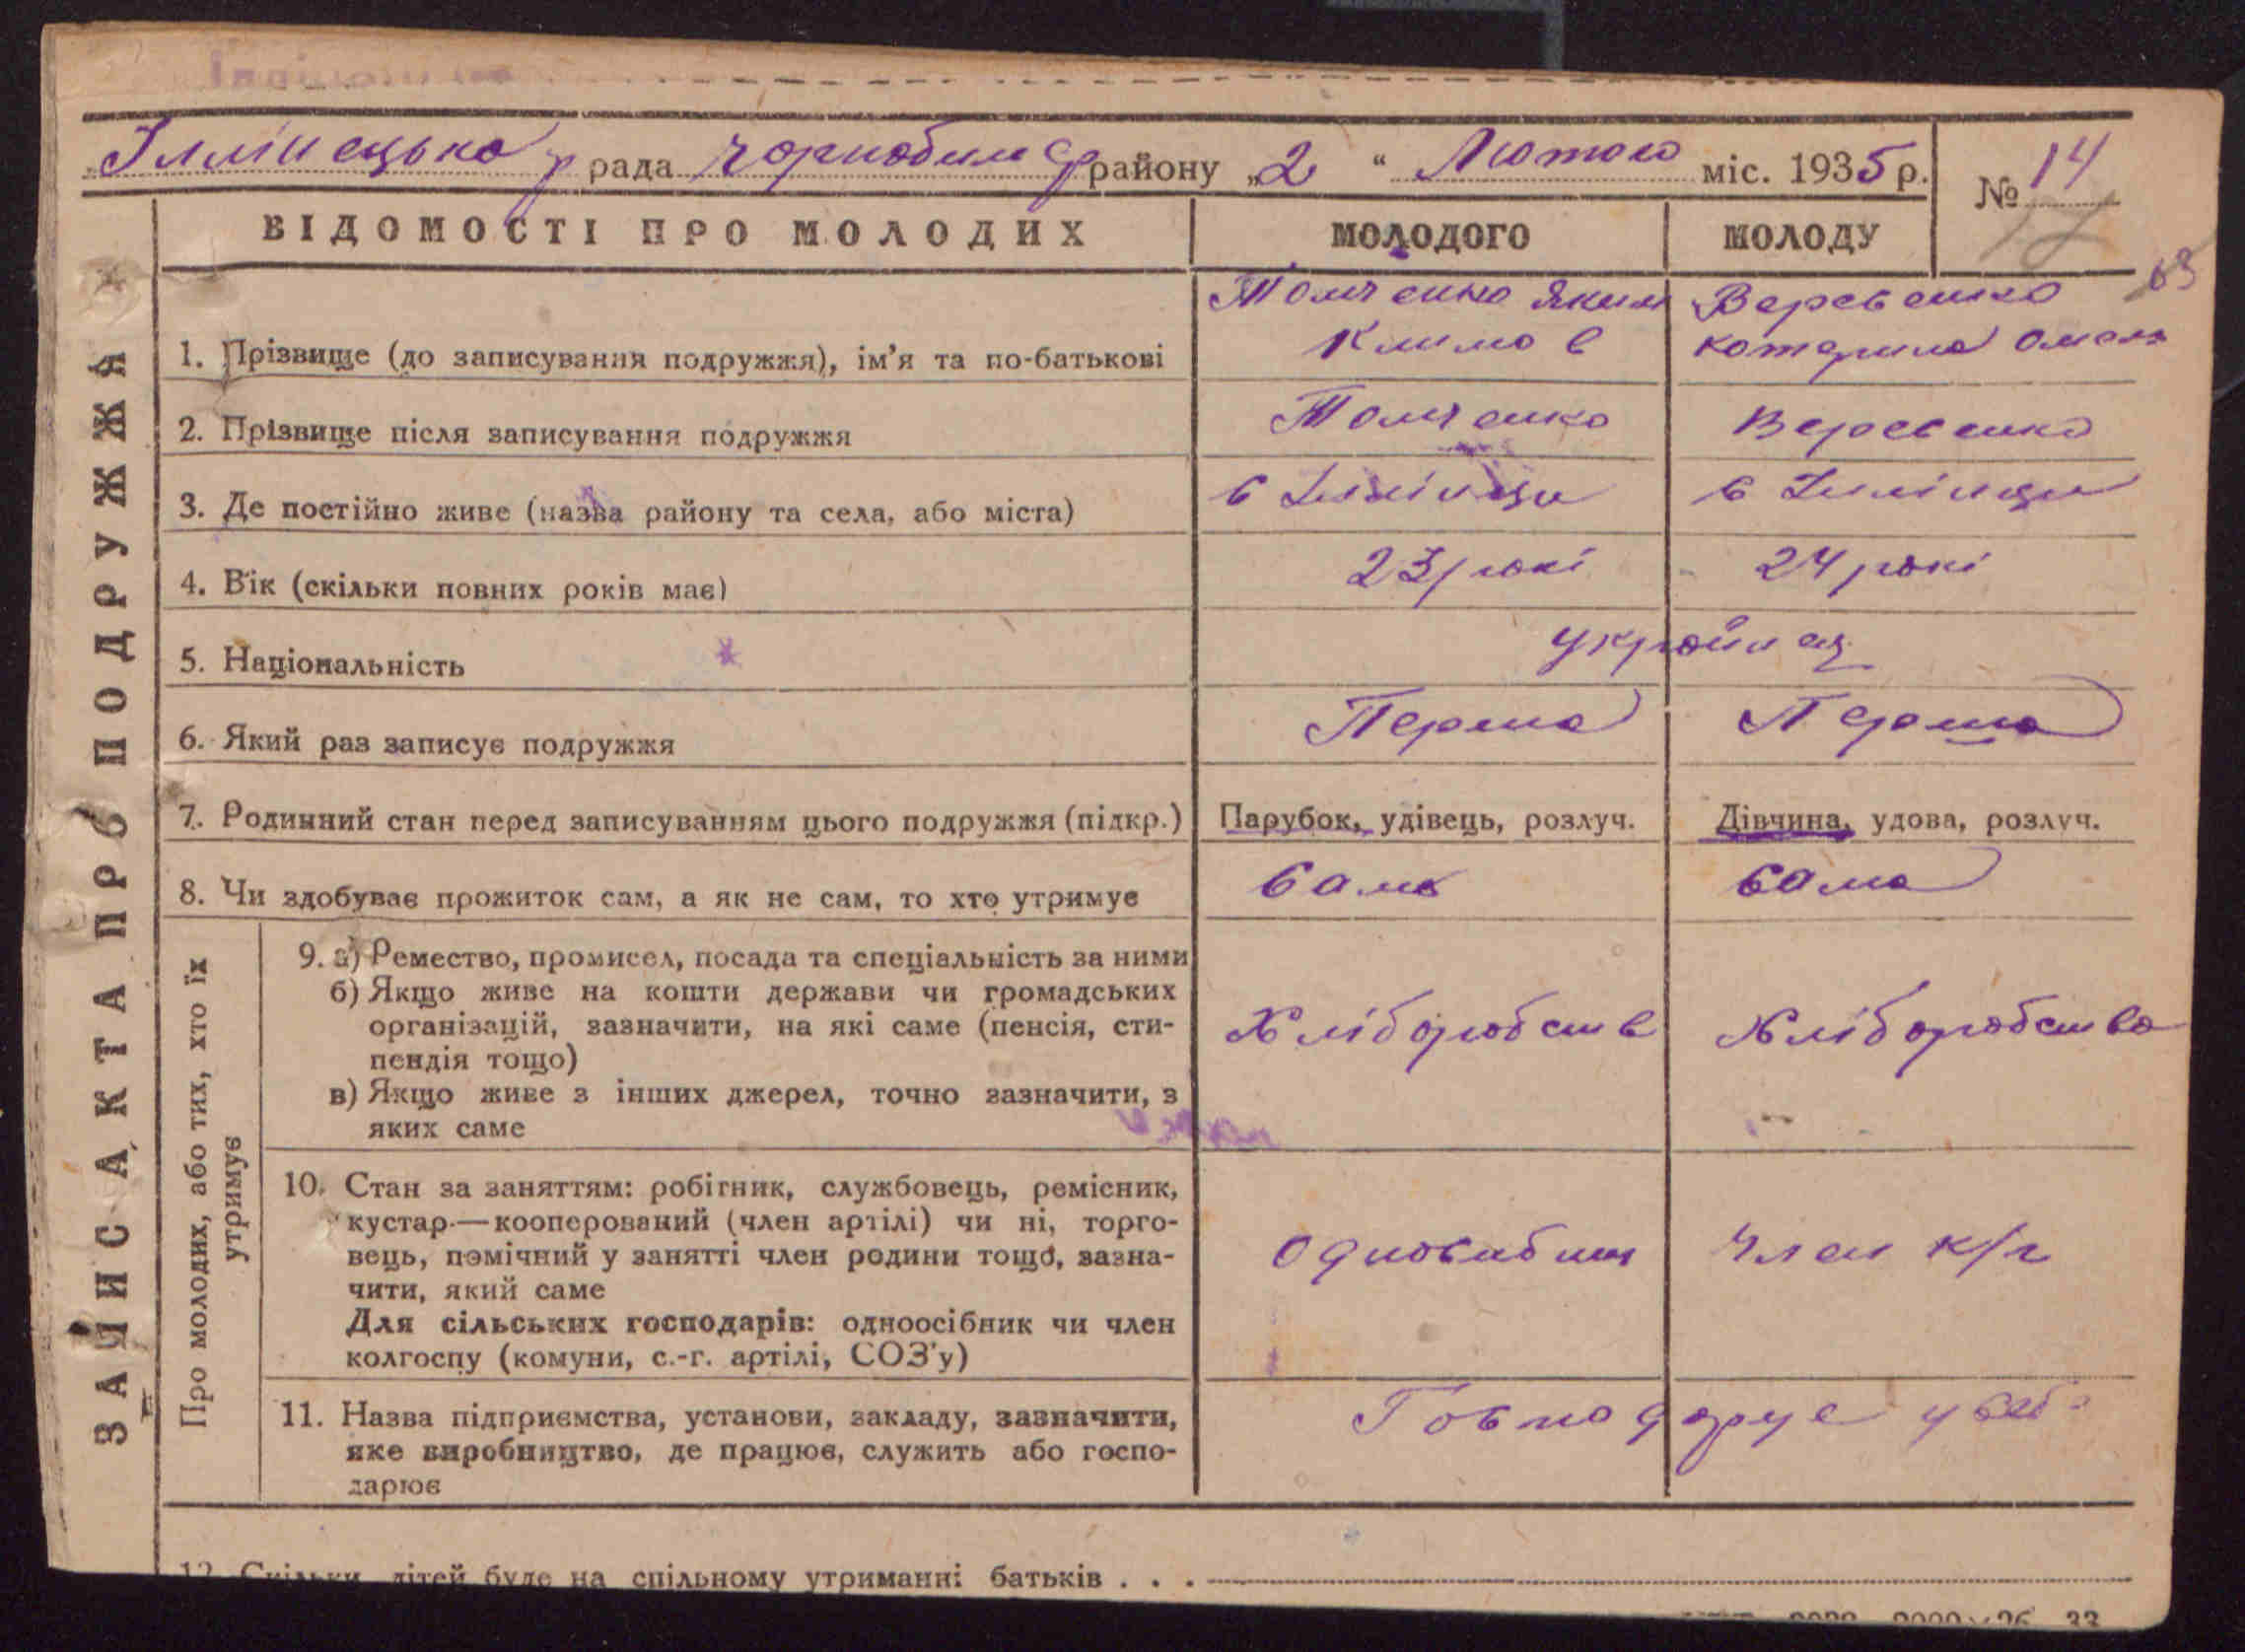 Іллінецька рада Чорнобильс району „2“ Лютого міс. 1935 р.
№ 14
17
63
ЗАПИС АКТА ПРО ПОДРУЖЖЯ
ВІДОМОСТІ ПРО МОЛОДИХ МОЛОДОГО МОЛОДУ
1. Прізвище (до записування подружжя), ім’я та по-батькові
Толченко Яким
Климов
Веревенко
Катерина Омел
2. Прізвище після записування подружжя Толченко Веревенко
3. Де постійно живе (назва району та села, або міста) с Іллінци с Іллінци
4. Вік (скільки повних років має) 23 рокі 24 рокі
5. Національність україец
6. Який раз записує подружжя Перша Перша
7. Родинний стан перед записуванням цього подружжя (підкр.) Парубок, удівець, розлуч. Дівчина, удова, розлуч.
8. Чи здобуває прожиток сам, а як не сам, то хто утримує сам сама
Про молодих, або тих, хто їх
утримує
9. а) Ремество, промисел, посада та спеціальність за ними
б) Якщо живе на кошти держави чи громадських
організацій, зазначити, на які саме (пенсія, сти-
пендія тощо)
в) Якщо живе з інших джерел, точно зазначити, з
яких саме
Хліборобств Хліборобство
10. Стан за заняттям: робітник, службовець, ремісник,
кустар — кооперований (член артілі) чи ні, торго-
вець, помічний у занятті член родини тощо, зазна-
чити, який саме
Для сільських господарів: одноосібник чи член
колгоспу (комуни, с.-г. артілі, СОЗ’у)
Одновибник Член к/г
11. Назва підприємства, установи, закладу, зазначити,
яке виробництво, де працює, служить або госпо-
дарює
Господарує у себе
12. Скільки дітей буде на спільному утриманні батьків . . .